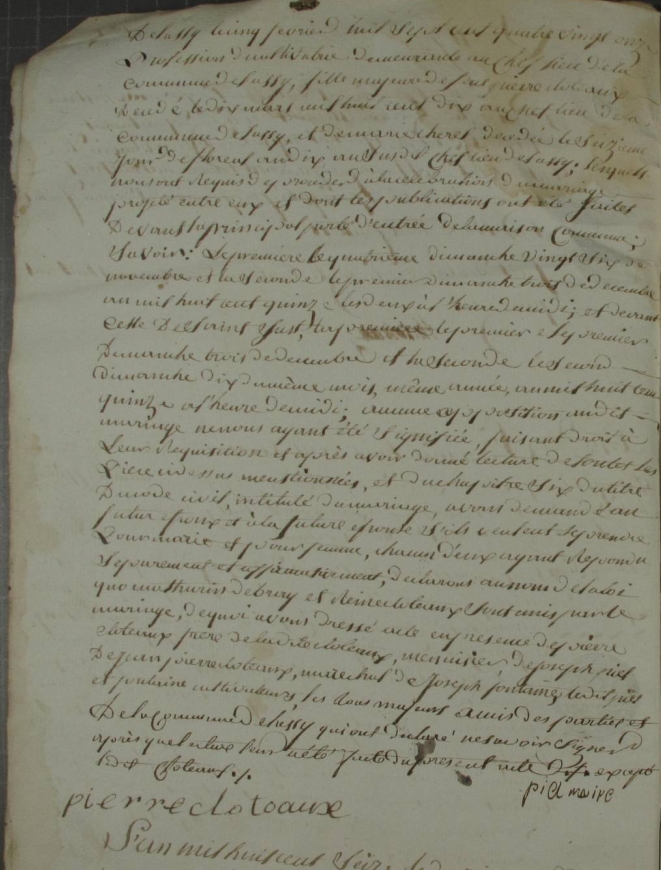 De lassy le cinq fevrier mil sept cent quatre vingt onze
Profession de cultivatrice demeurande au Chef lieu de la
commune de lassy, fille majeure de feu pierre cloteaux
decedé le dix mars mil huit cent dix au chef lieu de la
commune de lassy, et de marie cheret decedée le
jour de floreal an dix au susdit Chef lieu de lassy; lesquels
nous ont requis de proceder à la celebration du mariage
projeté entre eux et dont les publications ont été faites
Devant la principal porte d'entrée de la maison Commune;
Savoir; la premiere le quatrieme dimanche vingt six de
novembre et la seconde le premier dimanche trois de decembre
an mil huit cent quinze les deux à l'heure de midi; et devant
celle De Saint Just, la premiere le premier
Dimanche trois de decembre et la seconde le second
dimanche dix du même mois, même année, an mil huit cent
quinze à l'heure de midi; aucune opposition audit
mariage ne nous ayant été Signifiée, faisant droit à
leur requisition et après avoir donné lecture de toutes les
Pièce ci dessus mentionnées, et du chapitre Six du titre
Du code civil, intitulé du mariage, avons demandé au
futur epoux et à la future epouse S'ils veulent se prendre
Pour mari et pour femme, chacun d'eux ayant repondu
Separement et affirmativement, declarons au nom de la loi
que mathurin debray et Reine cloteaux Sont unis par le
mariage, de quoi avons dressé acte en presence de pierre
cloteaux frère de la dite cloteaux, menuisier, de Joseph piel
De jean pierre cloteaux, marechal de Joseph fontaine, ledit piel
et fontaine cultivateurs, les tous majeurs amis des parties et
De la Commune de lassy qui ont declaré ne savoir Signer
après que lecture leur a été faite du present acte excepté
ledit Cloteaux./.
piel maire
pierre clotoaux
L'an mil huit cent Seize